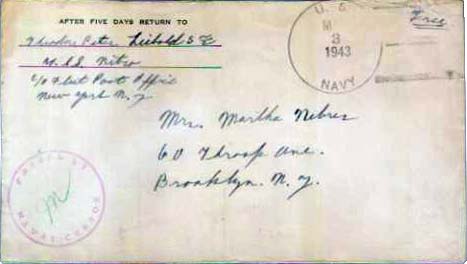 AFTER FIVE DAYS RETURN TO
Theodore Peter Liebold S 2/C
U.S.S. Nitro
c/o Fleet Post Office
New York N.Y.
U. S.
M
3
1943
NAVY
Free
Mrs. Martha Nibres
60 Throop Ave.
Brooklyn. N.Y.
PASSED BY
NAVAL CENSOR